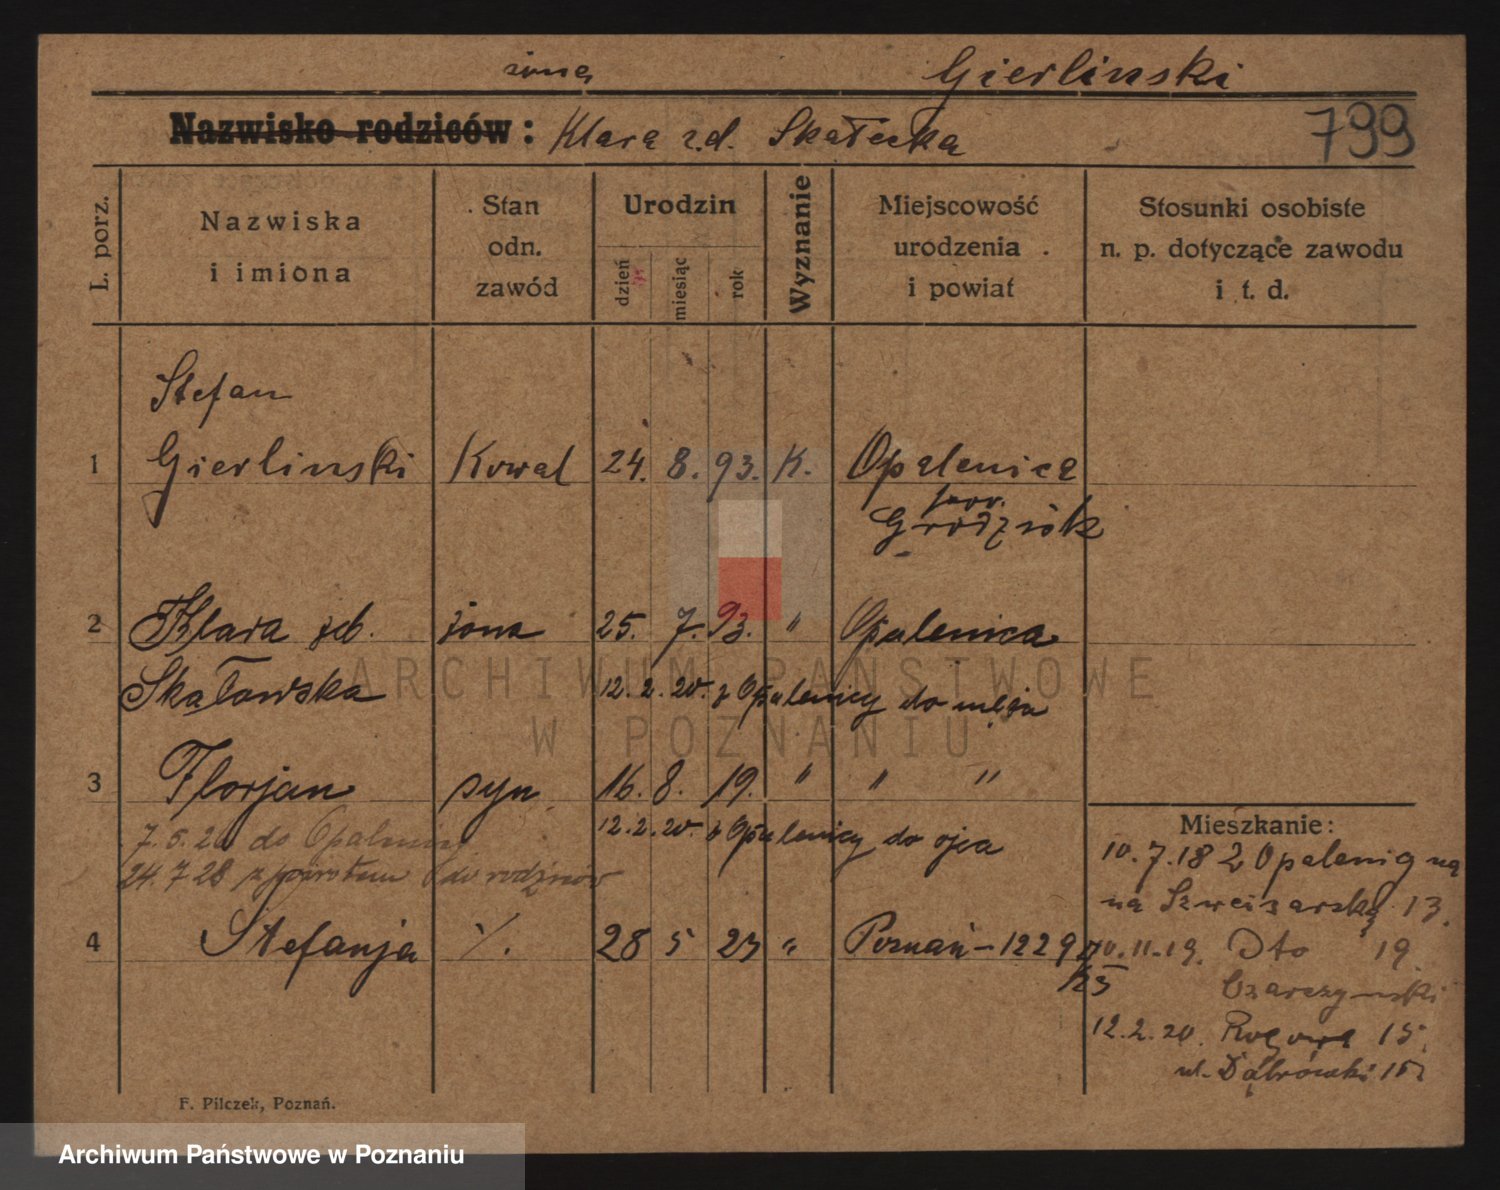 żona Gierlinski
Nazwisko rodziców: Klara z.d. Skałecka 799
L. porz.
Nazwiska
i imiona
Stan
odn.
zawód
Urodzin
dzień
miesiąc
rok
Wyznanie
Miejscowość
urodzenia
i powiat
Stosunki osobiste
n. p. dotyczące zawodu
i t. d.
Stefan
1 Gierlinski Kowal 24. 8. 93. K. Opalenica
pow.
Grodzisk
2 Klara żona 25. 7. 93. " Opalenica
Skałowska 12.2.20. z Opalenicy do męża
3 Florjan syn 16. 8. 19. " " "
12.2.20. z Opalenicy do ojca
7.5.20 do Opalenicy
24.7.28 z powrotem do rodziców
4 Stefanja 28 5 23 " Poznań - 1229
/23
Mieszkanie:
10.7.18 z Opalenicy na
na Szweisarską 13.
20.11.19. Dto 19.
12.2.20. 15.
ul. Dąbrowski 15
F. Pilczek, Poznań.
ARCHIWUM PAŃSTWOWE
W POZNANIU
Archiwum Państwowe w Poznaniu